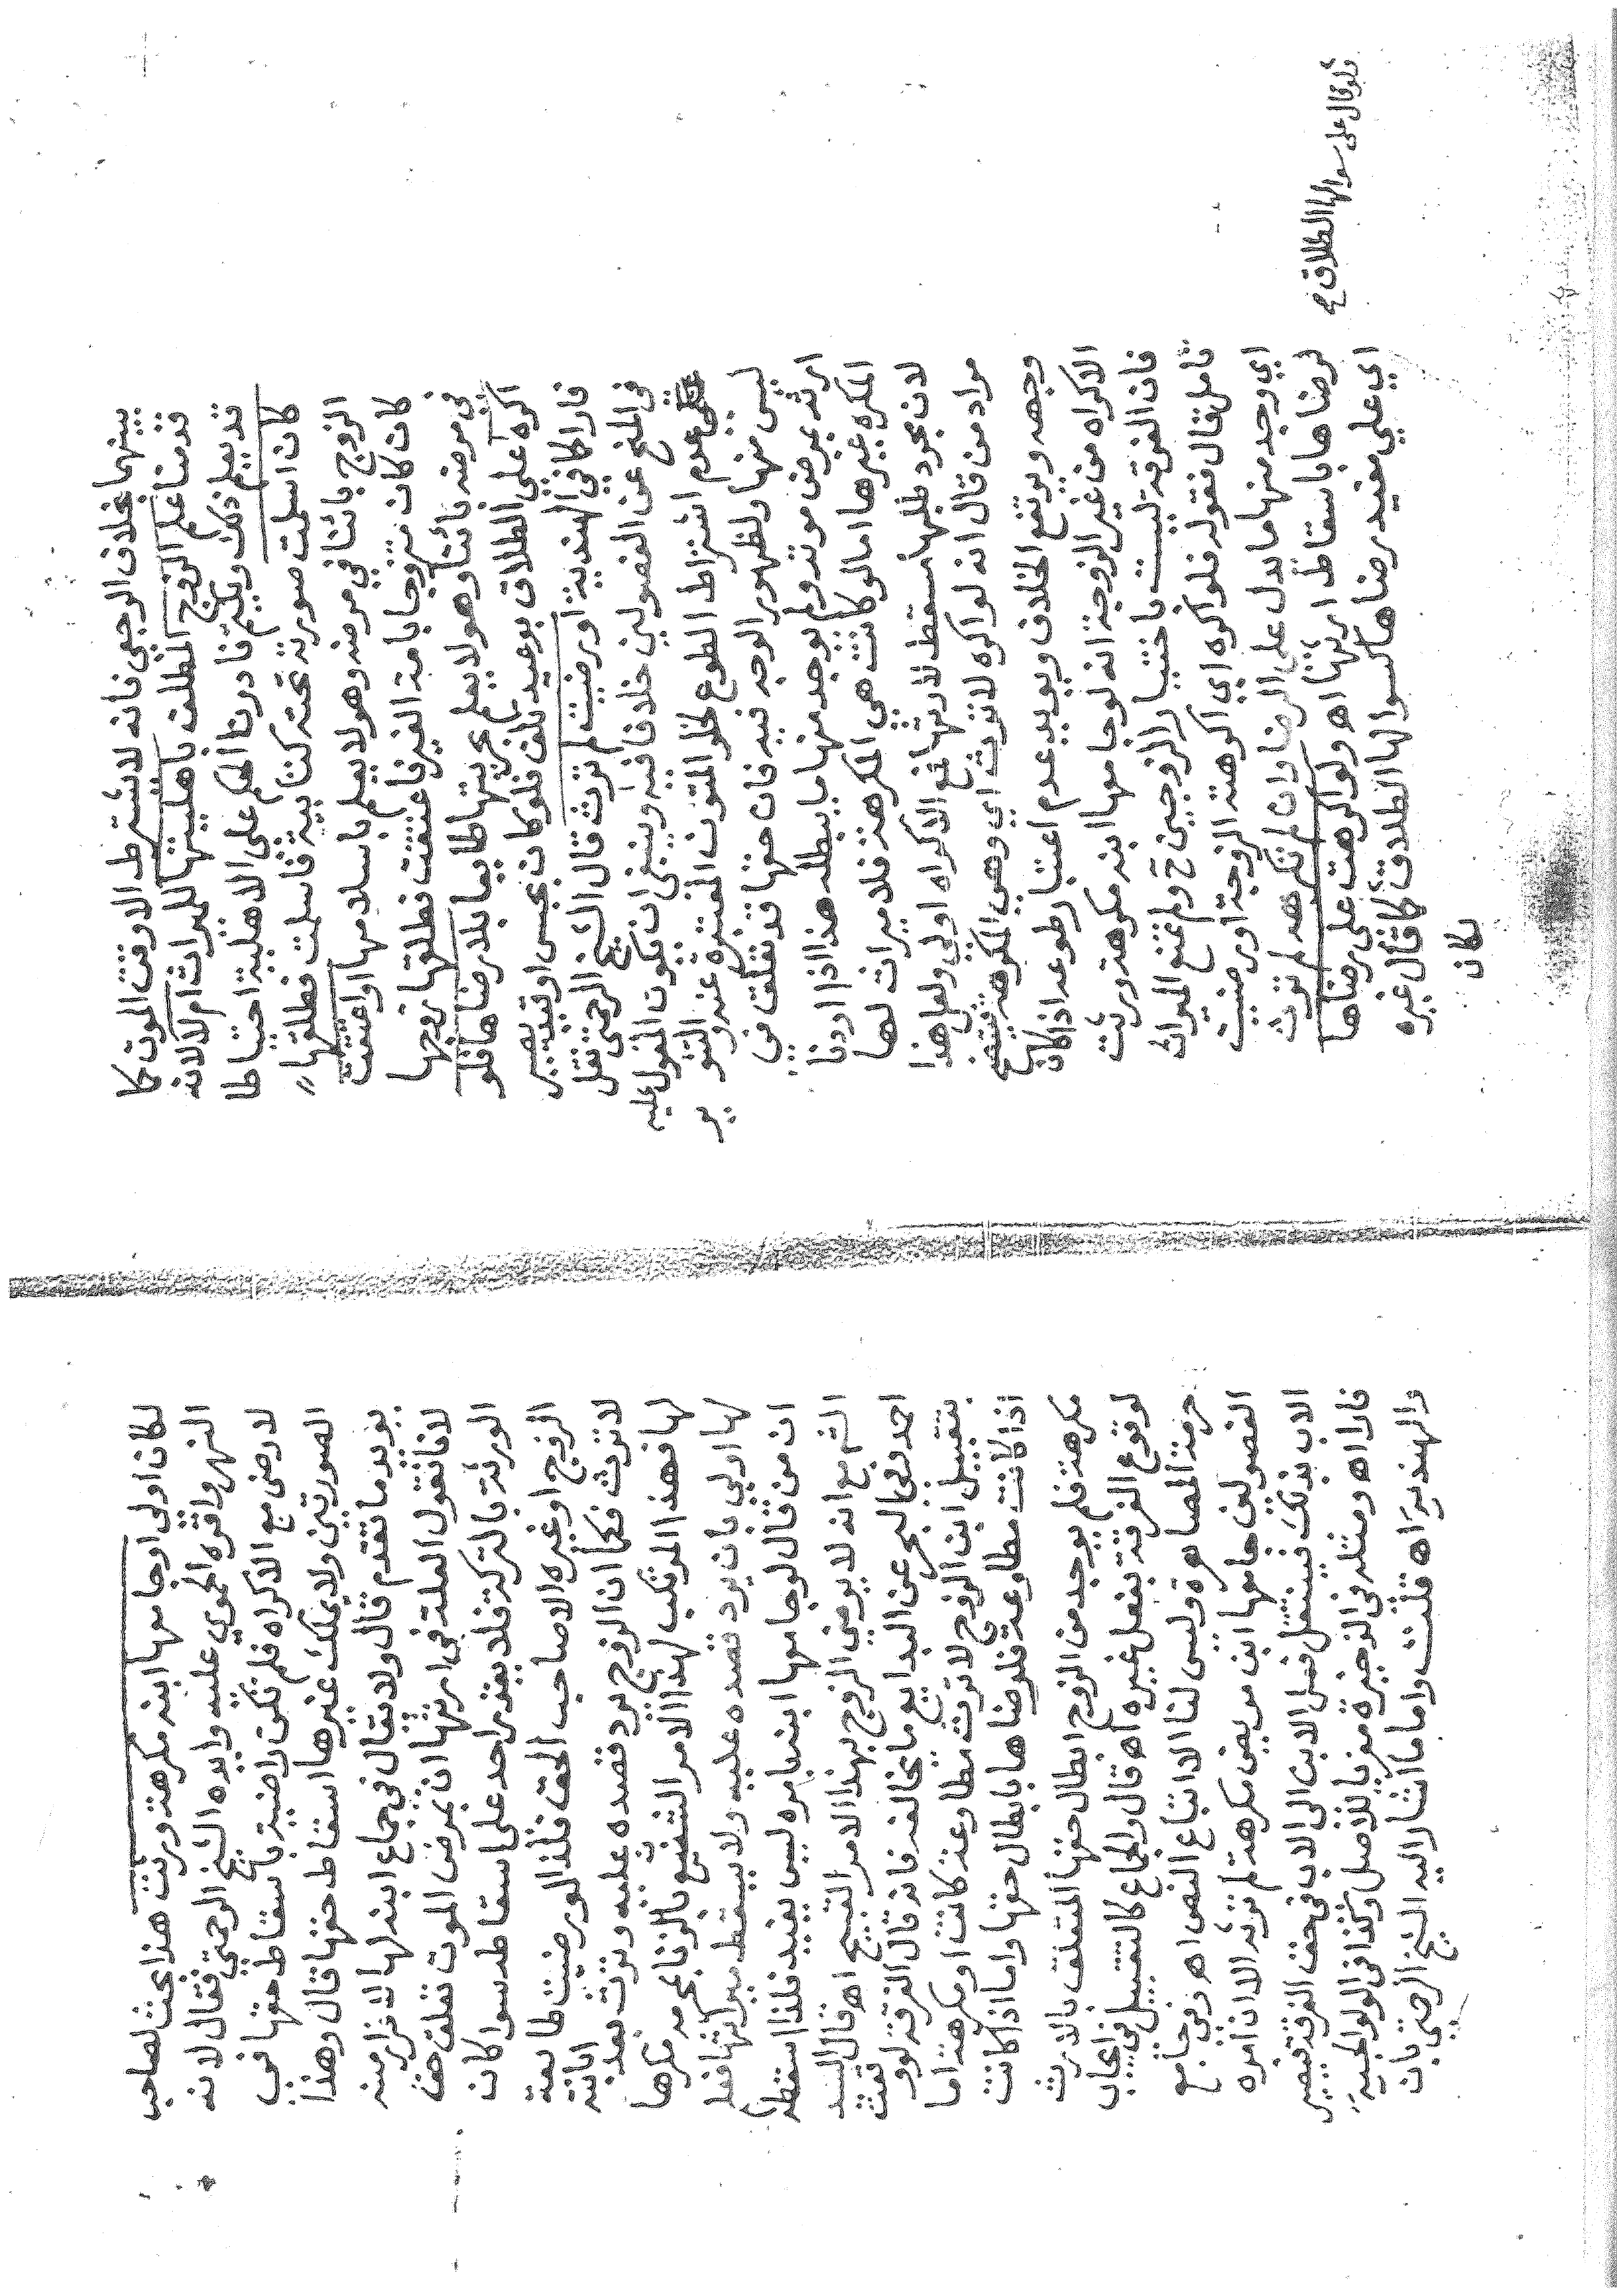 بينهما بخلاف الرجعي فانه لا يشترط الا وقت الموت كما
قدمنا علم الزوج المطلق باهليتها للميراث ام لا لانه
قد يعلم ذلك ويكتم فادرنا الحكم على الاهلية احتياطا
كان اسلمت صورته تحته كتابية فاسلمت فطلقها
الزوج بائنا في مرضه وهو لا يعلم باسلامها او اعتقت
كان كان متزوجا بامة الغير فاعتقت فطلقها زوجها
في مرضه بائنا وهو لا يعلم بحريتها طايعا بلا رضاها فلو
اكره على الطلاق بوعيد تلف فلو كان بحبس او قيد يصير
فارا كما في الهندية او رضيت لم ترث قال الشيخ الرحمتي نقل
في المنح عن الفصولين خلافا فيه وينبغي ان يكون المعول عليه
عدم اشتراط الطوع لخلو المتون المعتبرة عنه و
ليس منها ولظهور الوجه فيه فان حقها قد تعلق في
ارثه بمرض موته ولم يوجد منها ما يبطله هذا اذا اردنا
المكره غيرها اما لو كانت هي المكرهة فلا ميراث لها
لان مجرد طلبها مسقط لارثها فمع الاكراه اولى ولعل هذا
مراد من قال انه لو اكره لا ترث اي وهي المكرهة فيتضح
وجهه ويرتفع الخلاف ويويد عدم اعتبار طوعه اذا كان
الاكراه من غير الزوجة انه لو جامعها ابنه مكرهة ورثت
فان الفرقة ليست باختيار الزوجين ح ولم تمنع الميراث
تامل قال فقوله فلو اكره اي اكرهته الزوجة او رضيت
اي وجد منها ما يدل على الرضا وان لم تكرهه لم ترث
لرضاها باسقاط ارثها اه ولو اكرهت على رضاها
اي علي مفيد رضاها كسوالها الطلاق كما قال غيره
فلو قال على سوالها الطلاق
لكان
لكان اولى او جامعها ابنه مكرهة ورثت هذا بحث لصاحب
النهر واقره الحموي عليه وايده الشيخ الرحمتي فقال لانه
لا رضى مع الاكراه فلم تكن راضية باسقاط حقها في
الصورتين ولا يملك غيرها اسقاط حقها قال وهذا
يويد ما تقدم قال ولا يقال في جماع ابنه لها
لانا نقول العلة في ارثها ان بمرض الموت تعلق حق
الورثة بالتركة فلا يقدر احد على اسقاطه سوا كان
الزوج او غيره الا صاحب الحق فلذا لو رضيت طايعة
لا ترث فكما ان الزوج يرد قصده عليه وترث بعد ابانته
لها فهذا المرتكب لهذا الامر الشنيع بالزنا بمحرمه مكرها
لها اولى بان يرد قصده عليه ولا يسقط ميراثها فعلم
ان من قال لو جامعها ابنه بامره ليس بقيد فلذا اسقطه
الش مع انه لا يرضى الزوج بهذا الامر القبيح اه قال السيد
احمد وفي البحر عن البدايع ما يخالفه فانه قال الفرقة لو وقعت
بتقبيل ابن الزوج لا ترث مطاوعة كانت او مكرهة اما
اذا كانت مطاوعة فلرضاها بابطال حقها واما اذا كانت
مكرهة فلم يوجد من الزوج ابطال حقها المتعلق بالارث
لوقوع الفرقة بفعل غيره اه قال والجماع كالتقبيل في ايجاب
حرمة المصاهرة وليس لنا الا اتباع النص اه وفي جامع
الفصولين جامعها ابن مريض مكرهة لم ترثه الا ان امره
الاب بذلك فينتقل فعل الابن الى الاب في حق الفرقة فيصير
فارا اه ومثله في الذخيرة معزيا للاصل وكذا في الولوالجية
والهندية اه قلت واما ما اشار اليه الشيخ الرحمتي بان